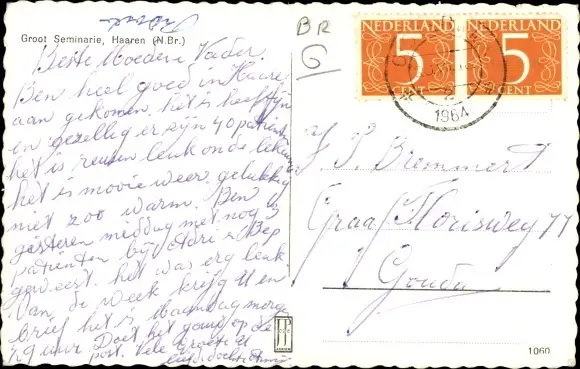 Groot Seminarie, Haaren (N.Br.)
Beste Moeder en Vader.
Ben heel goed in Haaren
aan gekomen. het is heel fijn
en gezellig er zijn 40 patienten
het is reusen leuk onde
het is mooie weer gelukkig
niet zoo warm. Ben
gisteren middag met nog 3
patienten bij Adri & Bep
geweest. het was erg leuk
Van de week krijg U en
brief het is Maandag morge
9 uur. Doet het goud op de
post. Vele Groeten
BR
G
NEDERLAND
5
CENT
NEDERLAND
5
CENT
1964
J. Bremmert
Graaf Florisweg 77
Gouda
1060